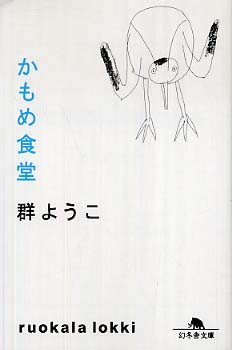 かもめ食堂
群ようこ
ruokala lokki
幻冬舎文庫